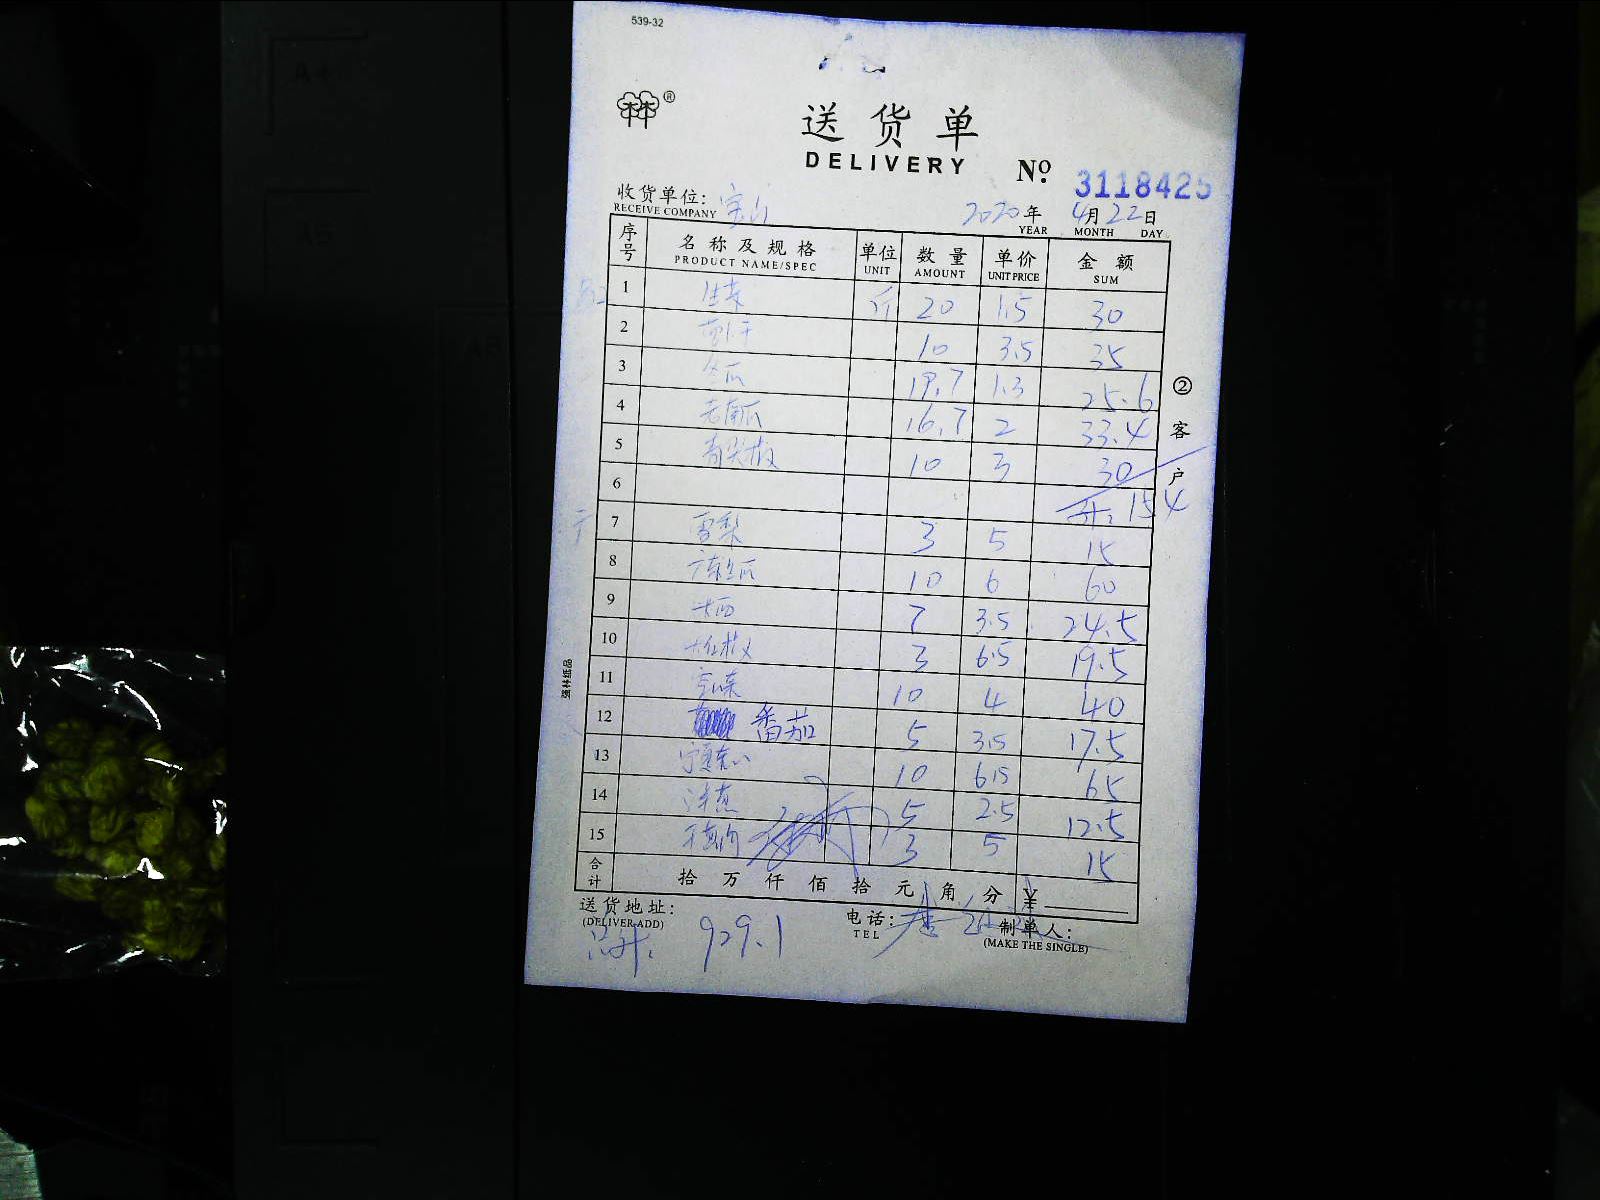 539-32
林®
送货单
DELIVERY
№ 3118425
收货单位: 宝山
RECEIVE COMPANY
2020年 4月22日
YEAR MONTH DAY
序号 名称及规格 单位 数量 单价 金额
PRODUCT NAME/SPEC UNIT AMOUNT UNIT PRICE SUM
1 生菜 斤 20 1.5 30
2 10 3.5 35
3 冬瓜 19.7 1.3 25.6
4 老南瓜 16.7 2 33.4
5 青尖椒 10 3 30
6 计: 154
7 雪梨 3 5 15
8 10 6 60
9 7 3.5 24.5
10 大红椒 3 6.5 19.5
11 10 4 40
12 番茄 5 3.5 17.5
13 宁夏菜心 10 6.5 65
14 5 2.5 12.5
15 3 5 15
合计 拾 万 仟 佰 拾 元 角 分 ¥
送货地址:
(DELIVER ADD)
电话:
TEL
制单人:
(MAKE THE SINGLE)
总计: 929.1
②客户
强林纸品